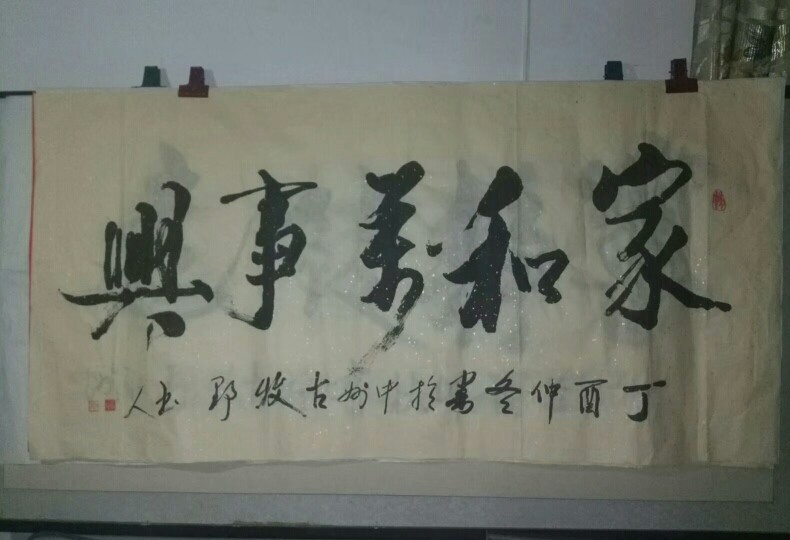 家和萬事興
丁酉仲冬書於中州古牧野玉人